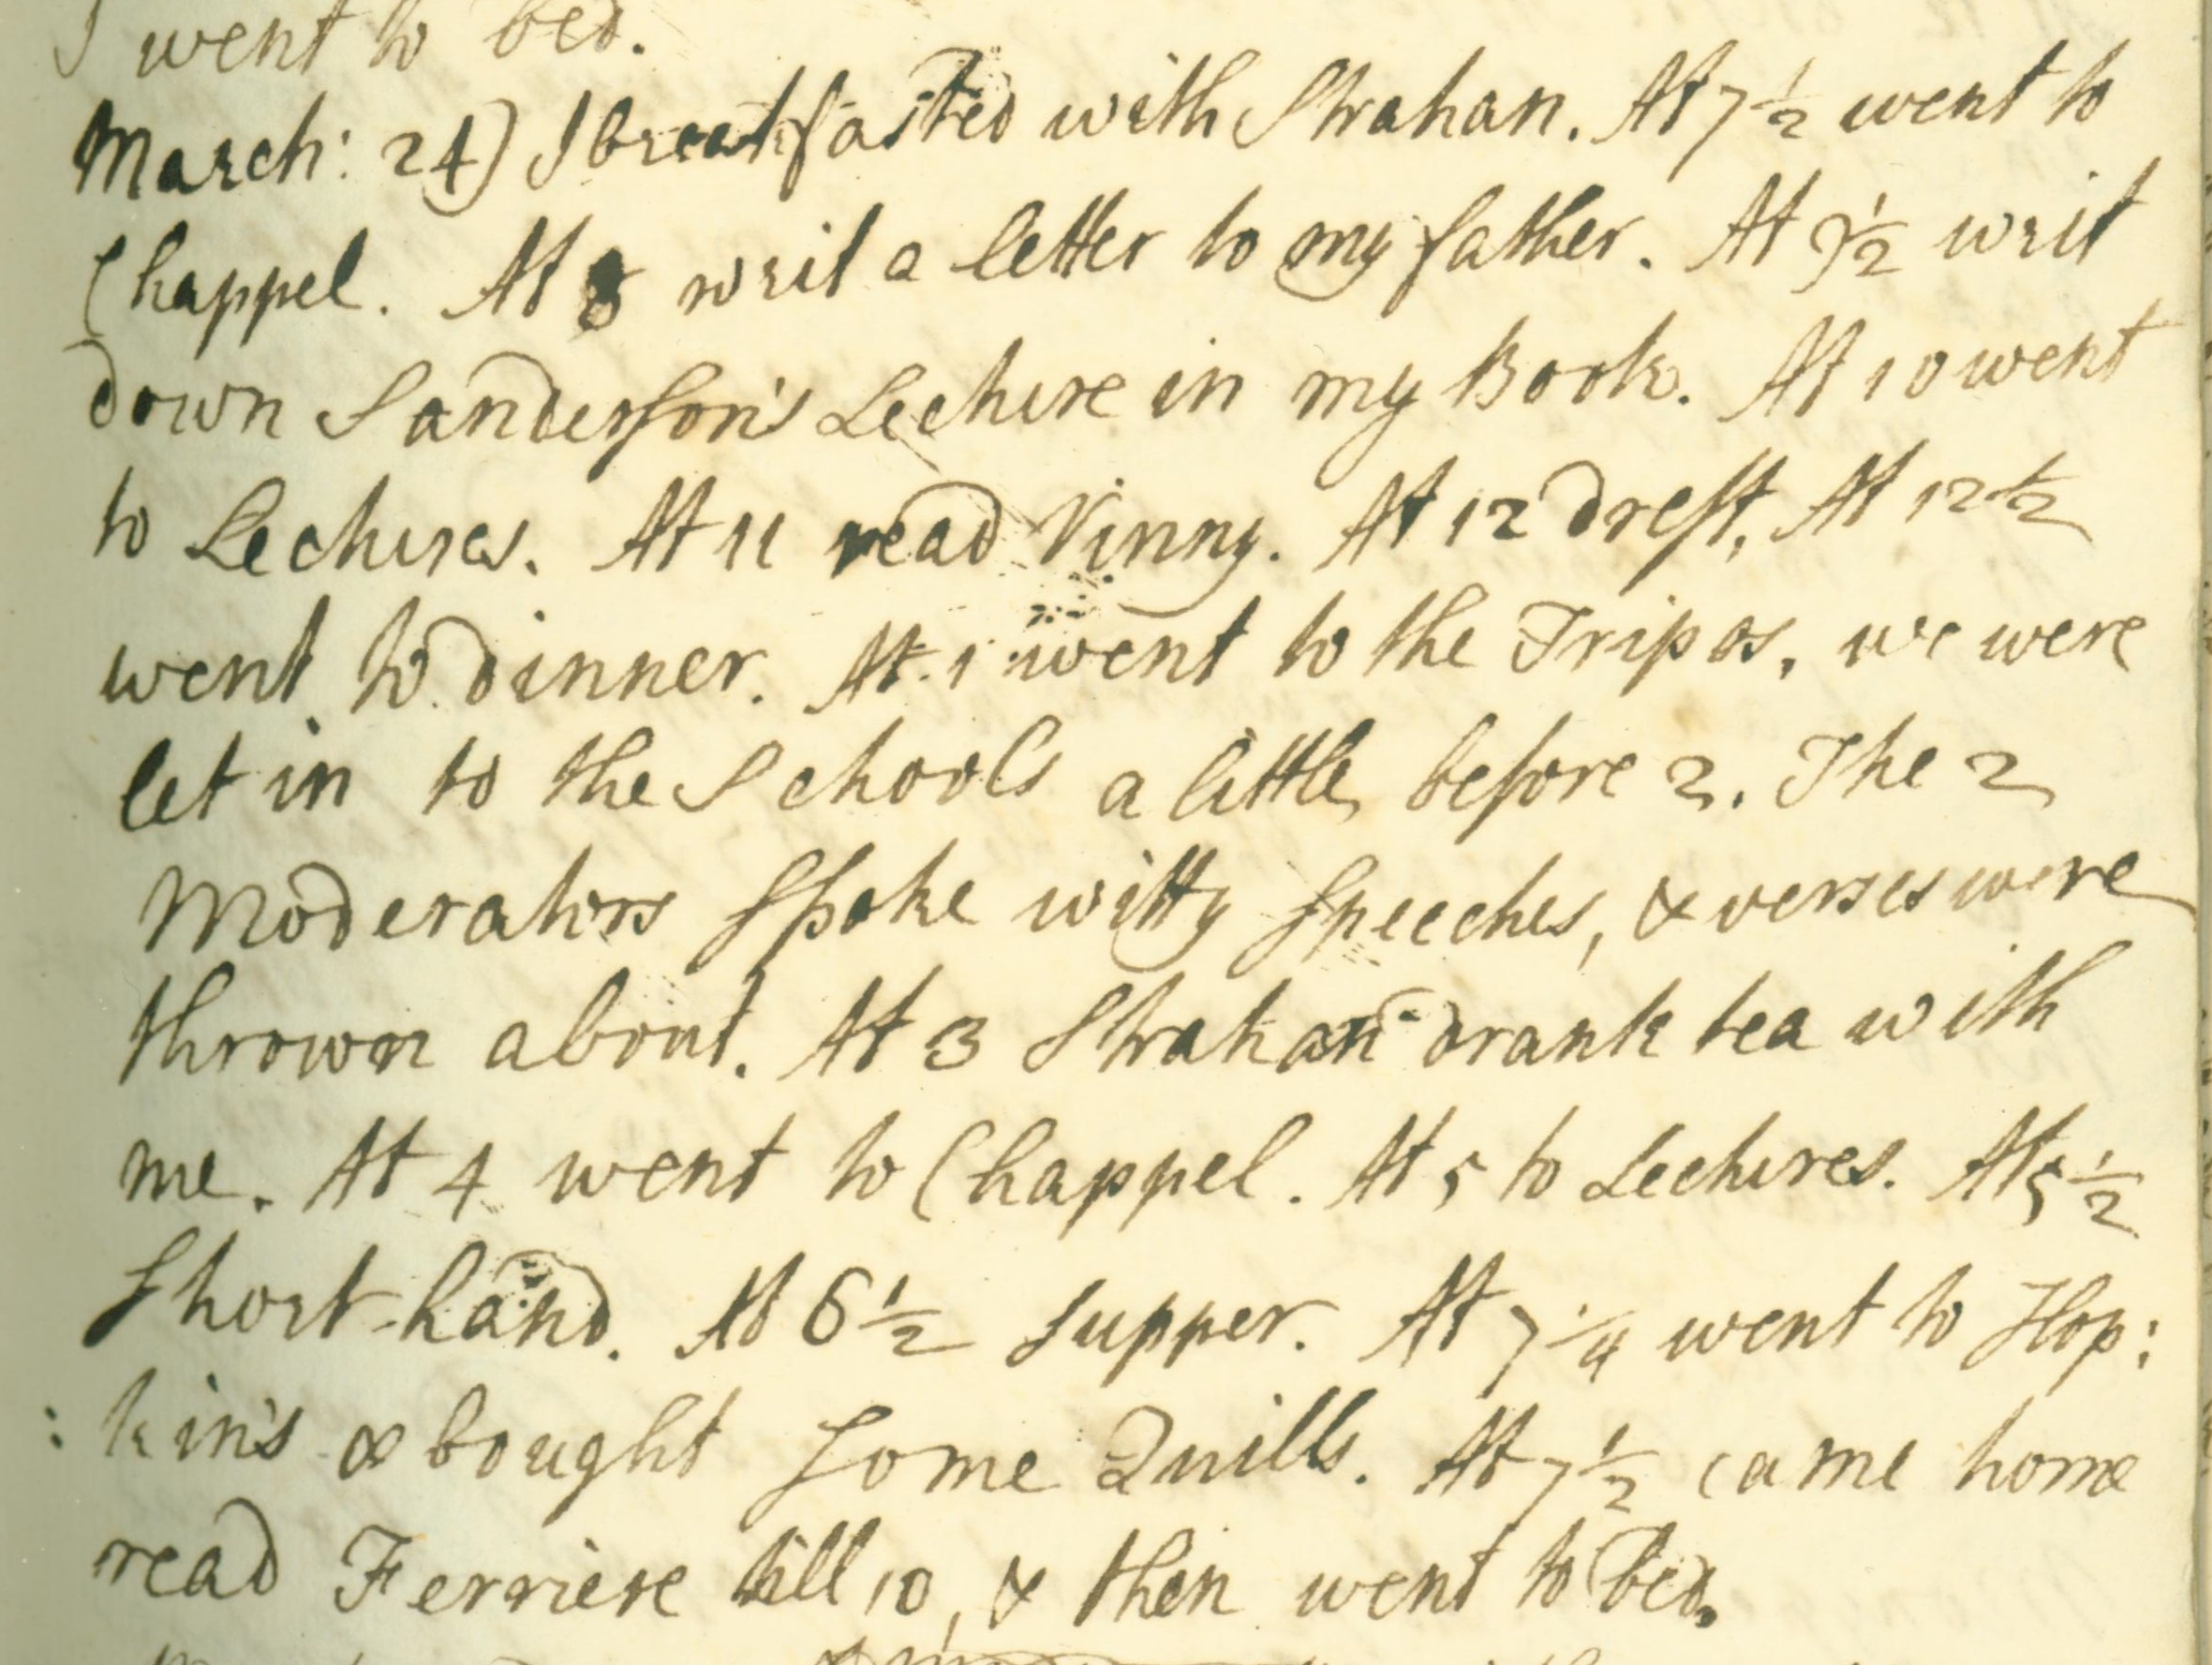 I went to bed.
March: 24) I breakfasted with Strahan. At 7 1/2 went to
Chappel. At 8 writ a letter to my father. At 9 1/2 writ
down Sanderson's Lecture in my Book. At 10 went
to Lectures. At 11 read Vinny. At 12 drest, At 12 1/2
went to dinner. At 1 went to the Tripos, we were
let in to the Schools a little before 2. The 2
Moderators spoke witty speeches, & verses were
thrown about. At 3 Strahan drank tea with
me. At 4 went to Chappel. At 5 to Lectures. At 5 1/2
Short-hand. At 6 1/2 supper. At 7 1/4 went to Hop:
: kin's & bought some Quills. At 7 1/2 came home
read Ferriere till 10, & then went to bed.